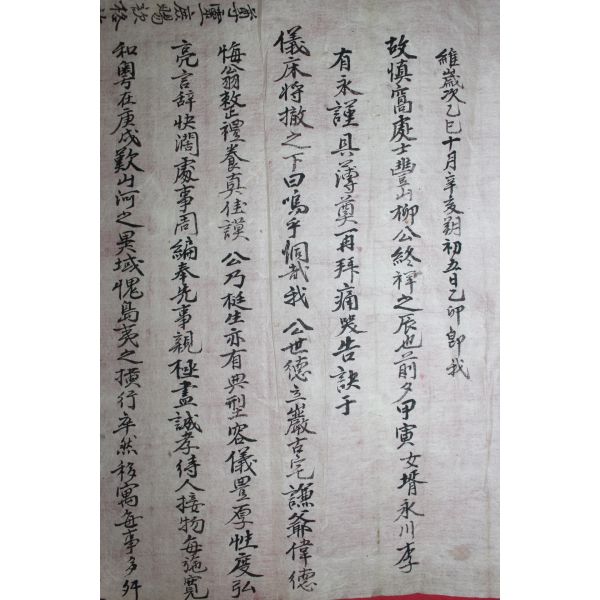 維歲次乙巳十月辛亥朔初五日乙卯卽我
故愼窩處士豊山柳公終祥之辰也前夕甲寅女壻永川李
有永謹具薄奠再拜痛哭告訣于
儀床將撤之下曰嗚乎慟哉我 公世德立巖古宅謙爺偉德
悔翁整禮養眞佳謨 公乃挺生亦有典型容儀豊厚性度弘
亮言辭快濶處事周編奉先事親極盡誠孝待人接物每施寬
和粤在庚戌歎山河之異域愧島夷之橫行卒然移寓每事多舛